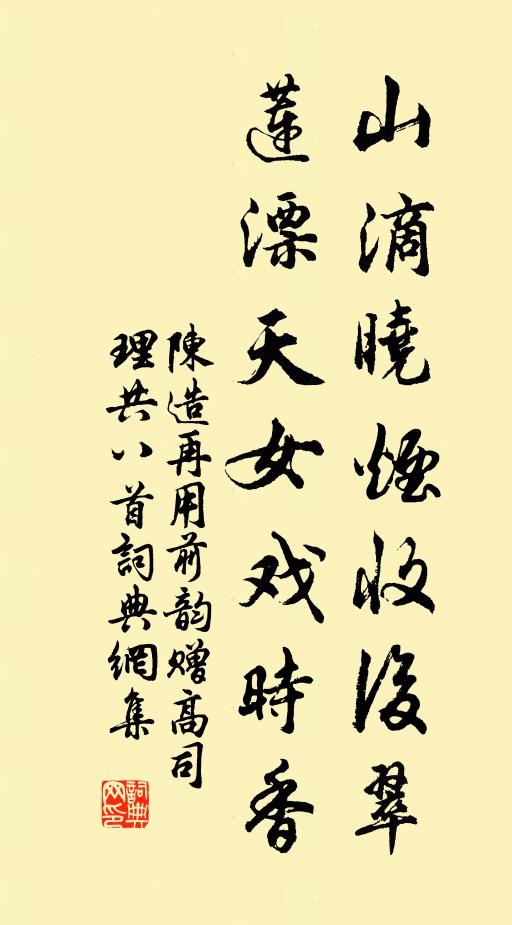 山滴曉煙收後翠
蓮漂天女戏時香
陳造再用前韵赠高司
理共八首詞典網集
詞典
网印